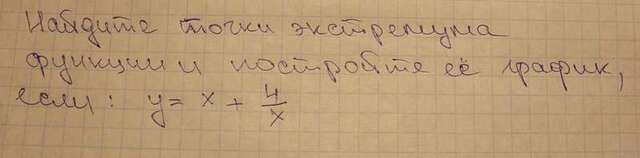 Найдите точки экстремума
функции и постройте её график,
если: y = x + 4/x